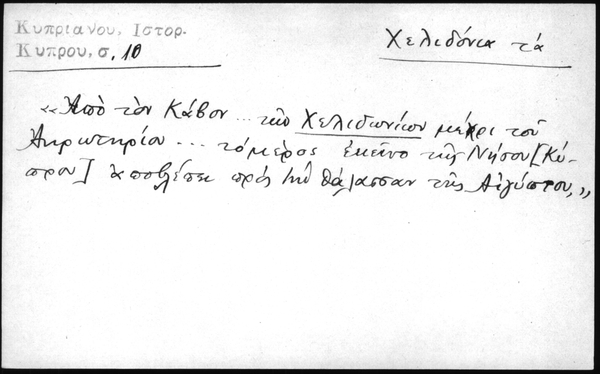 Κυπριανου, Ιστορ.
Κυπρου, σ. 10
Χελιδόνια τά
«Ἀπὸ τὸν Κάβον ... τῶν Χελιδωνίων μέχρι τοῦ
Ἀκρωτηρίου ... τὸ μέρος ἐκεῖνο τῆς Νήσου [Κύ-
πρου] ἀποβλέπει πρὸς τὴν θάλασσαν τῆς Αἰγύπτου,»